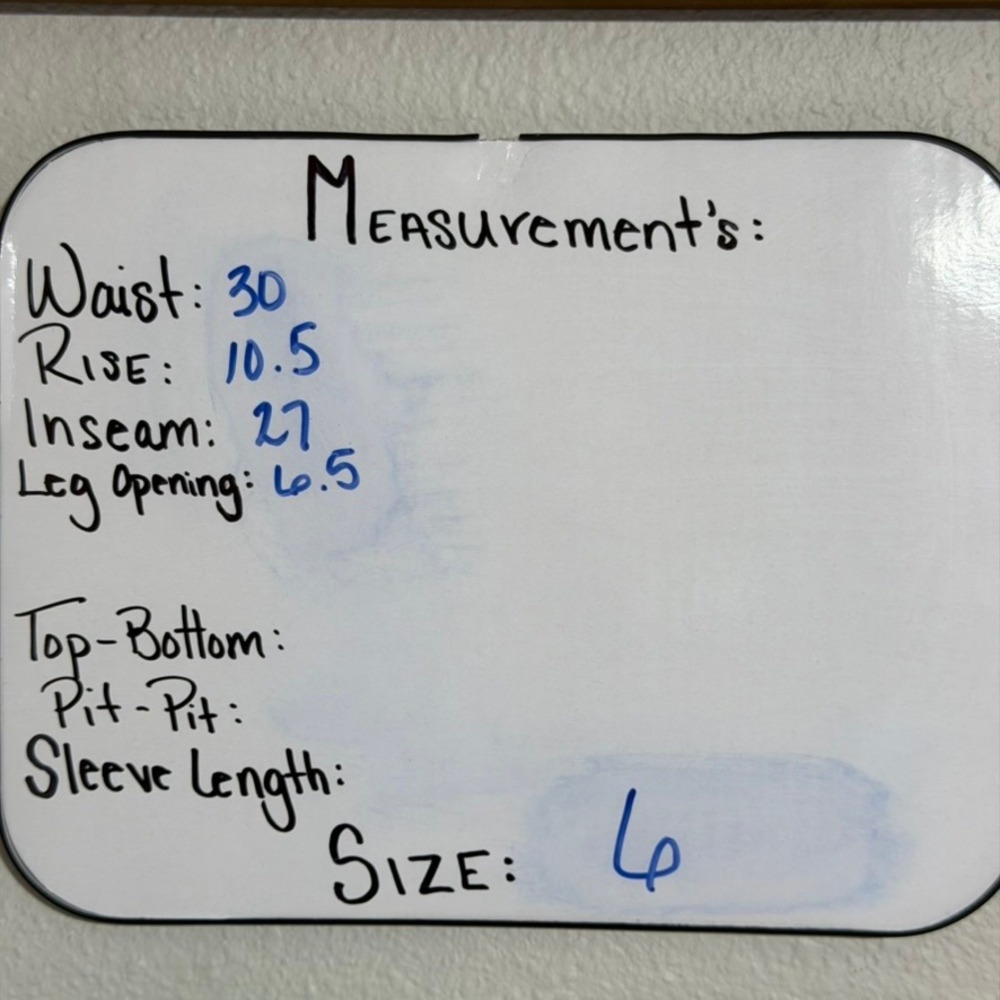 MEASurement's:
Waist: 30
RISE: 10.5
Inseam: 27
Leg Opening: 6.5
Top-Bottom:
Pit-Pit:
Sleeve Length:
SIZE: 6